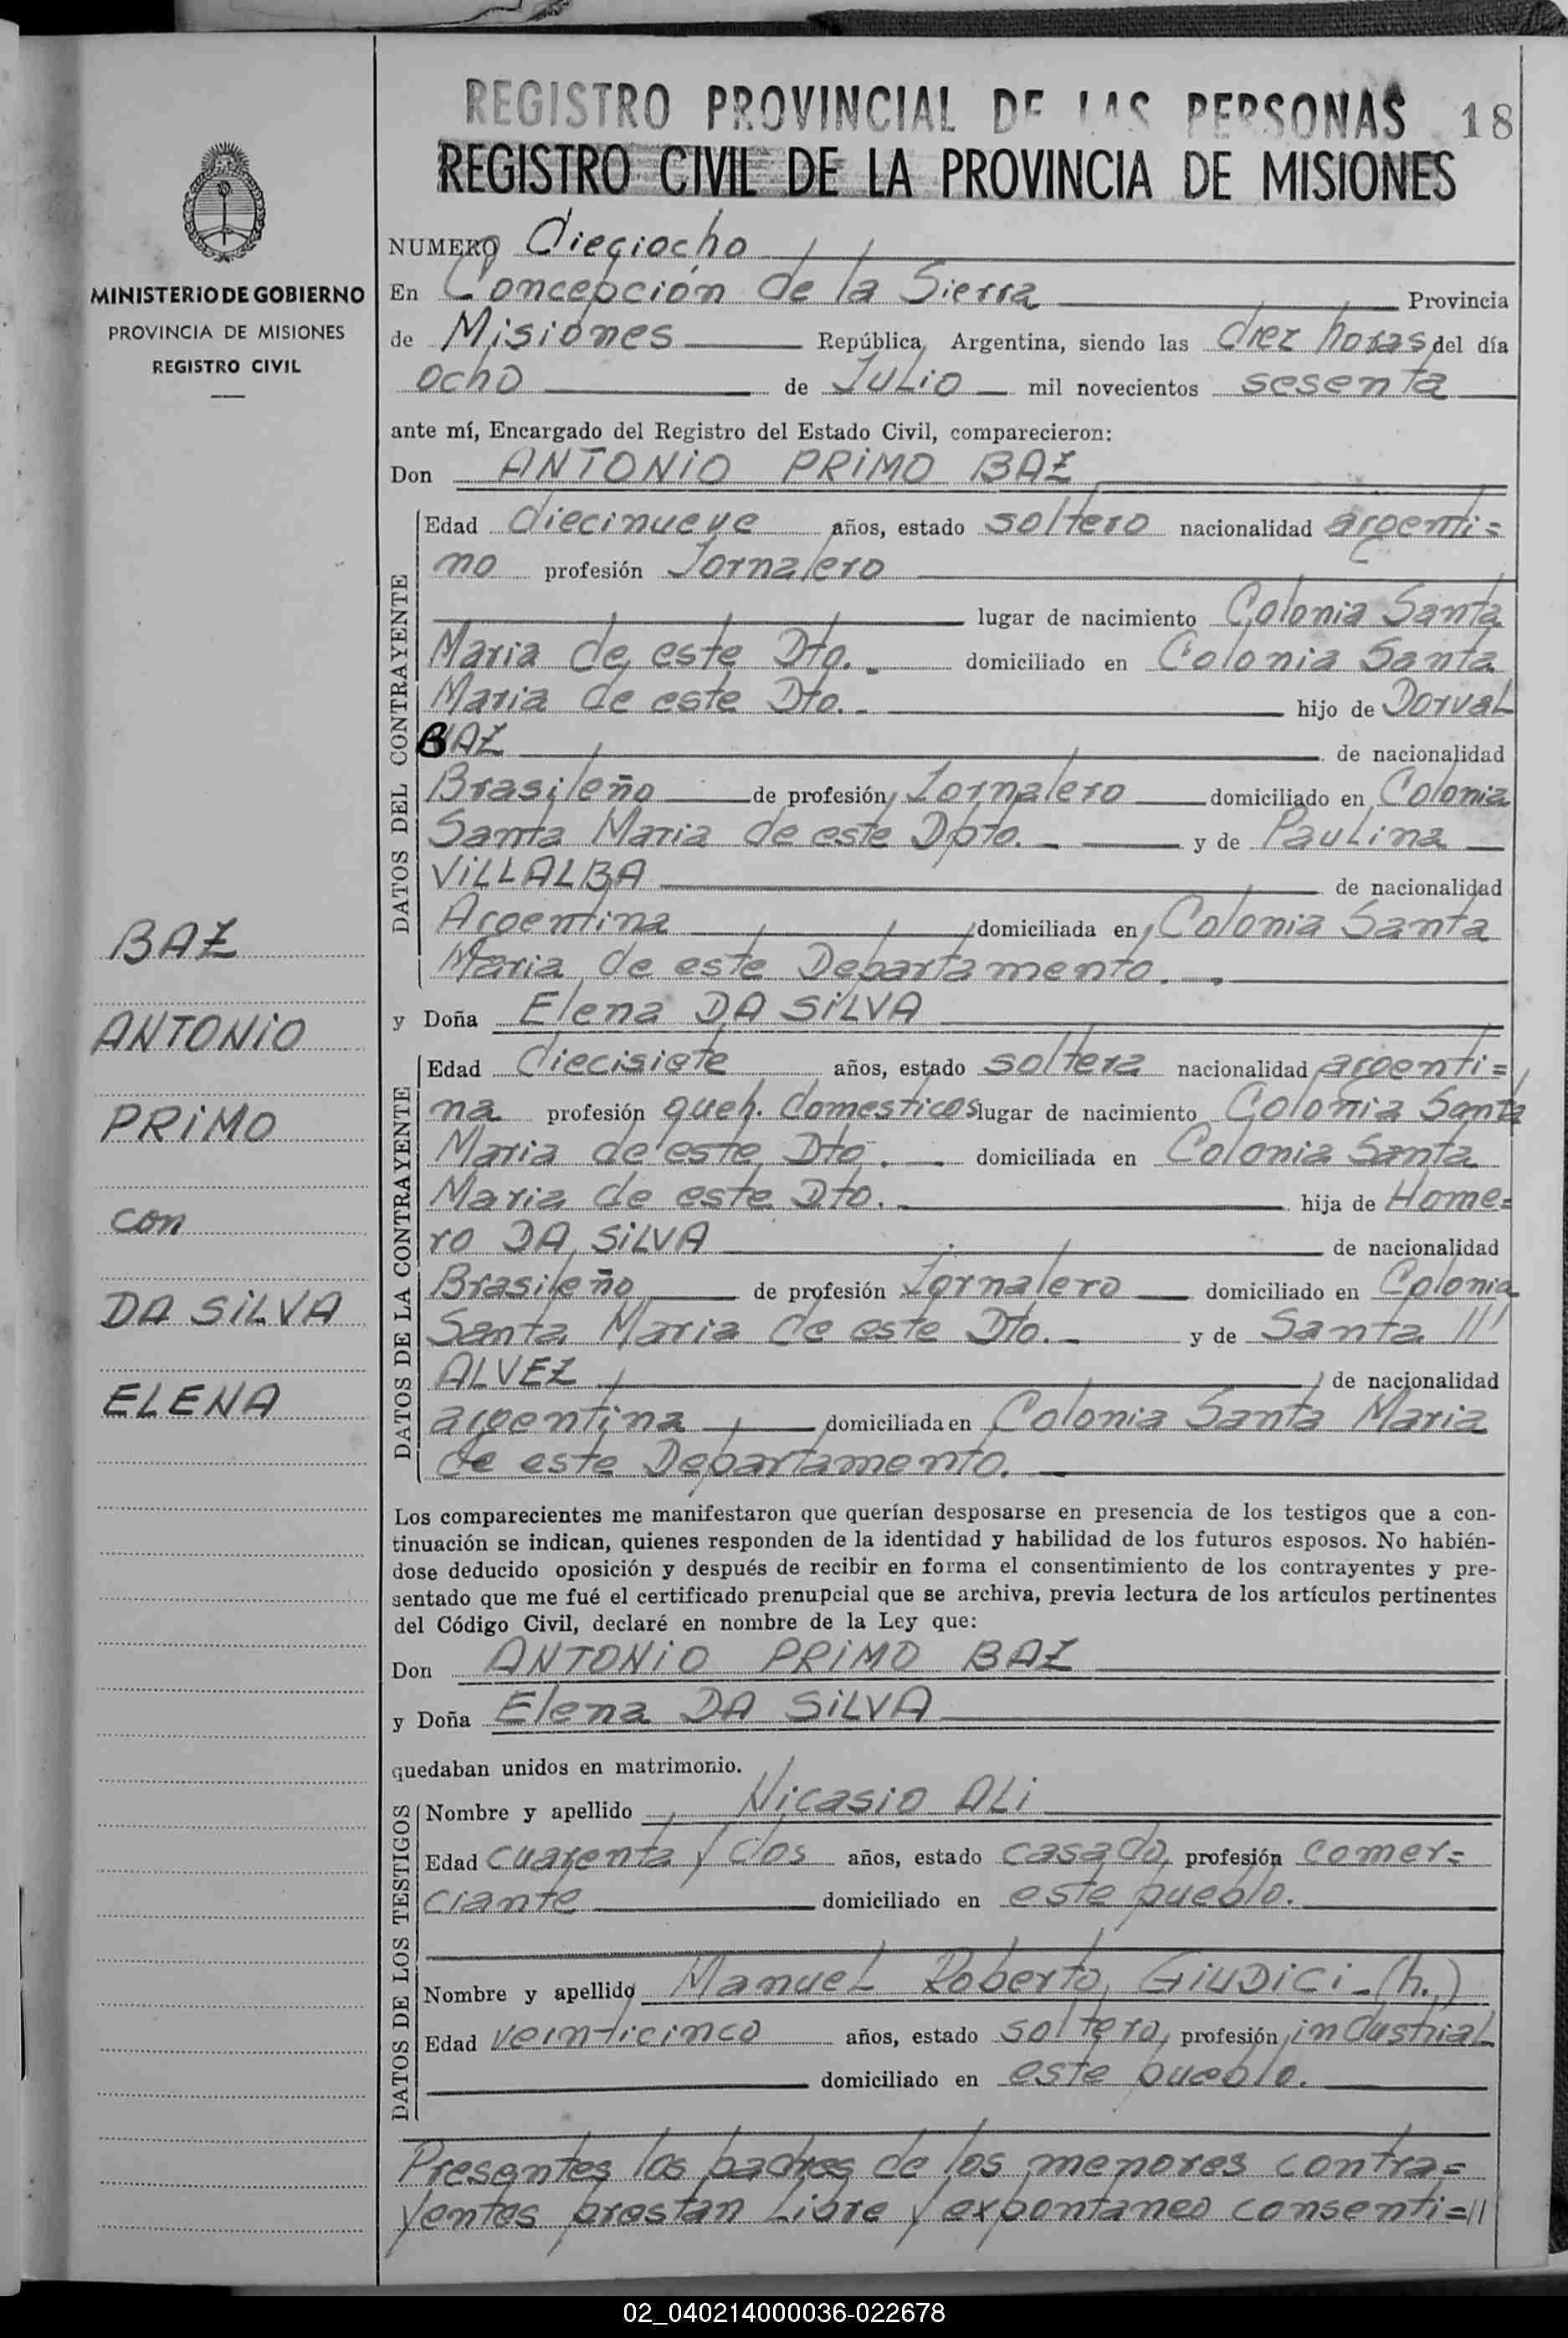 REGISTRO PROVINCIAL DE LAS PERSONAS 18
REGISTRO CIVIL DE LA PROVINCIA DE MISIONES
MINISTERIO DE GOBIERNO
PROVINCIA DE MISIONES
REGISTRO CIVIL
BAZ
ANTONIO
PRIMO
con
DA SILVA
ELENA
NUMERO Dieciocho
En Concepción de la Sierra Provincia
de Misiones República Argentina, siendo las diez horas del día
ocho de Julio mil novecientos sesenta
ante mí, Encargado del Registro del Estado Civil, comparecieron:
Don ANTONIO PRIMO BAZ
DATOS DEL CONTRAYENTE
Edad diecinueve años, estado soltero nacionalidad argenti=
no profesión Jornalero
lugar de nacimiento Colonia Santa
Maria de este Dto. - domiciliado en Colonia Santa
Maria de este Dto. - hijo de Dorval
BAZ de nacionalidad
Brasileño de profesión Jornalero domiciliado en Colonia
Santa Maria de este Dpto. - y de Paulina
VILLALBA de nacionalidad
Argentina domiciliada en Colonia Santa
Maria de este Departamento. -
y Doña Elena DA SILVA
DATOS DE LA CONTRAYENTE
Edad diecisiete años, estado soltera nacionalidad argenti=
na profesión queh. domesticos lugar de nacimiento Colonia Santa
Maria de este Dto. - domiciliada en Colonia Santa
Maria de este Dto. - hija de Home=
ro DA SILVA de nacionalidad
Brasileño de profesión Jornalero domiciliado en Colonia
Santa Maria de este Dto. - y de Santa ///
ALVEZ de nacionalidad
argentina domiciliada en Colonia Santa Maria
de este Departamento. -
Los comparecientes me manifestaron que querían desposarse en presencia de los testigos que a con-
tinuación se indican, quienes responden de la identidad y habilidad de los futuros esposos. No habién-
dose deducido oposición y después de recibir en forma el consentimiento de los contrayentes y pre-
sentado que me fué el certificado prenupcial que se archiva, previa lectura de los artículos pertinentes
del Código Civil, declaré en nombre de la Ley que:
Don ANTONIO PRIMO BAZ
y Doña Elena DA SILVA
quedaban unidos en matrimonio.
DATOS DE LOS TESTIGOS
Nombre y apellido Nicasio ALI
Edad cuarenta y dos años, estado casado profesión comer=
ciante domiciliado en este pueblo.
Nombre y apellido Manuel Roberto GIUDICI - (h.)
Edad veinticinco años, estado soltero, profesión industrial
domiciliado en este pueblo.
Presentes los padres de los menores contra=
yentes prestan libre y expontaneo consenti=//
02_040214000036-022678